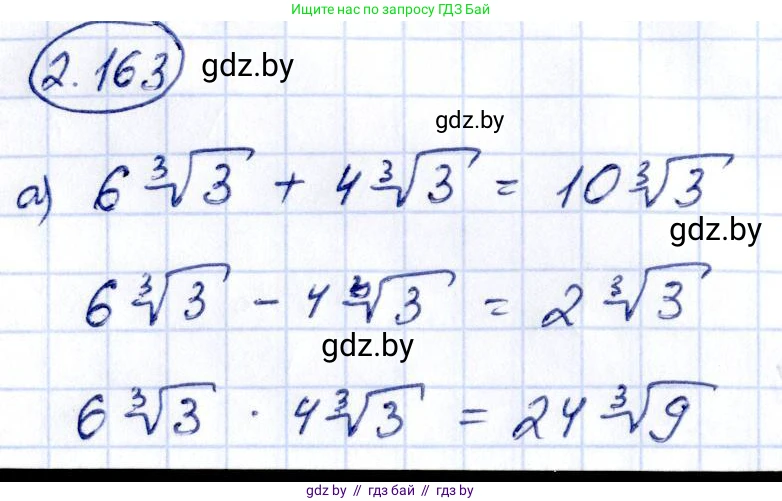 Ищите нас по запросу ГДЗ Бай
2.163 gdz.by
gdz.by
а) 6∛3 + 4∛3 = 10∛3
gdz.by
6∛3 - 4∛3 = 2∛3
gdz.by
6∛3 · 4∛3 = 24∛9
gdz.by // гдз бай // гдз by